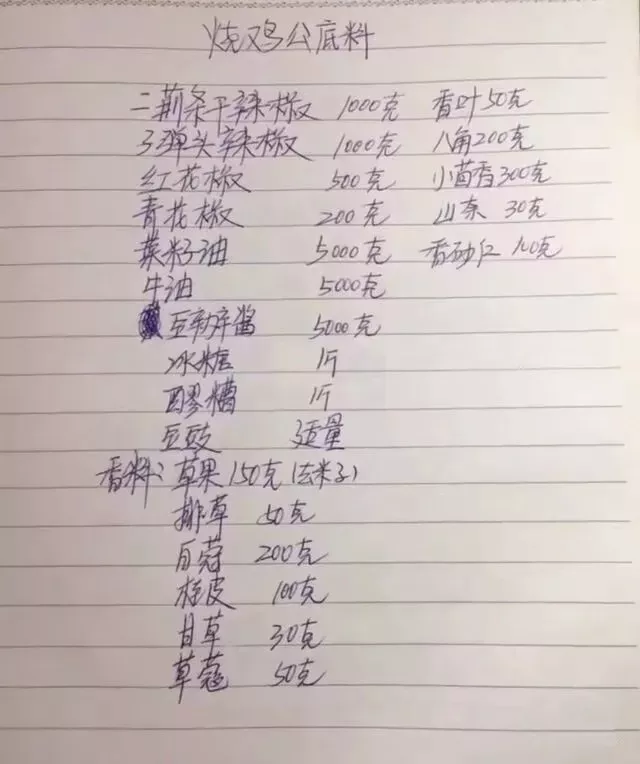 烧鸡公底料
二荆条干辣椒 1000克 香叶50克
子弹头辣椒 1000克 八角200克
红花椒 500克 小茴香300克
青花椒 200克 山奈 30克
菜籽油 5000克 香砂仁 100克
牛油 5000克
豆瓣酱 5000克
冰糖 1斤
醪糟 1斤
豆豉 适量
香料: 草果150克(去米子)
排草 50克
白蔻 200克
桂皮 100克
甘草 30克
草蔻 50克